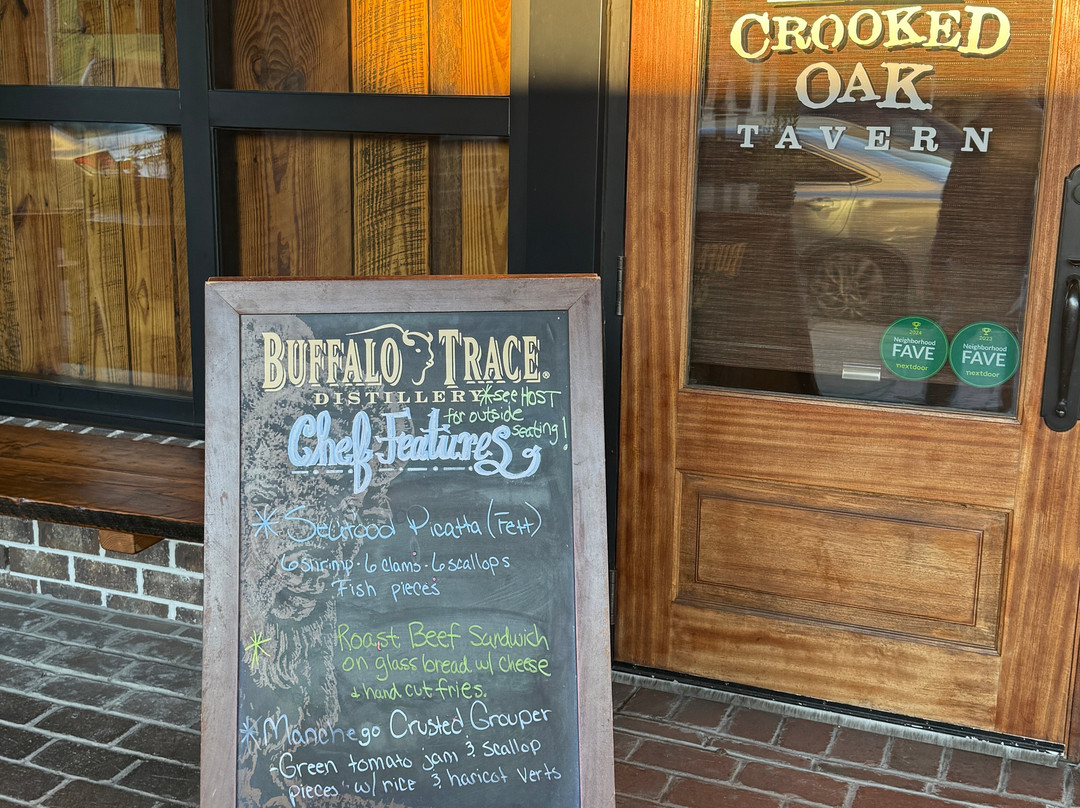 CROOKED
OAK
TAVERN
2024
Neighborhood
FAVE
nextdoor
2023
Neighborhood
FAVE
nextdoor
BUFFALO TRACE
DISTILLERY
*see HOST
for outside
seating!
Chef Features
* Seafood Picatta (Fett)
6 shrimp - 6 clams - 6 scallops
Fish pieces
* Roast Beef Sandwich
on glass bread w/ cheese
& hand cut fries.
* Manchego Crusted Grouper
-Green tomato jam & scallop
pieces w/ rice & haricot verts